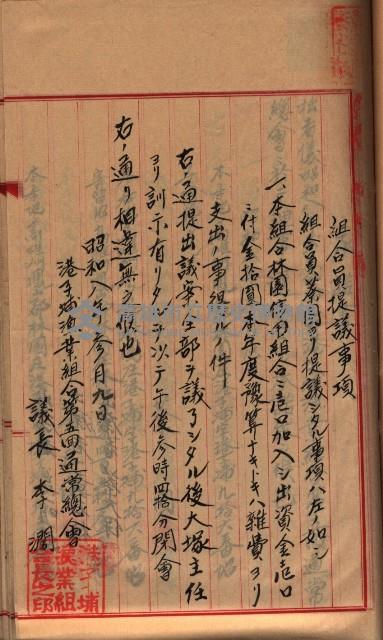 組合員提議事項
組合員蔡 ヨリ提議シタル事項ハ左ノ如シ
一、本組合林園信用組合ニ壱口加入シ出資金壱口
ニ付金拾圓本年度豫算ナキトキハ雜費ヨリ
支出ノ事 ノ件
右ノ通提出議案全部ヲ議了シタル後大塚主任
ヨリ訓示有リタリ次テ午後参時四拾分閉會
右ノ通リ相違無之候也
昭和八年参月九日
港子埔漁業組合第五回通常總會
議長 李 澗
港子埔
漁業組
合長之印